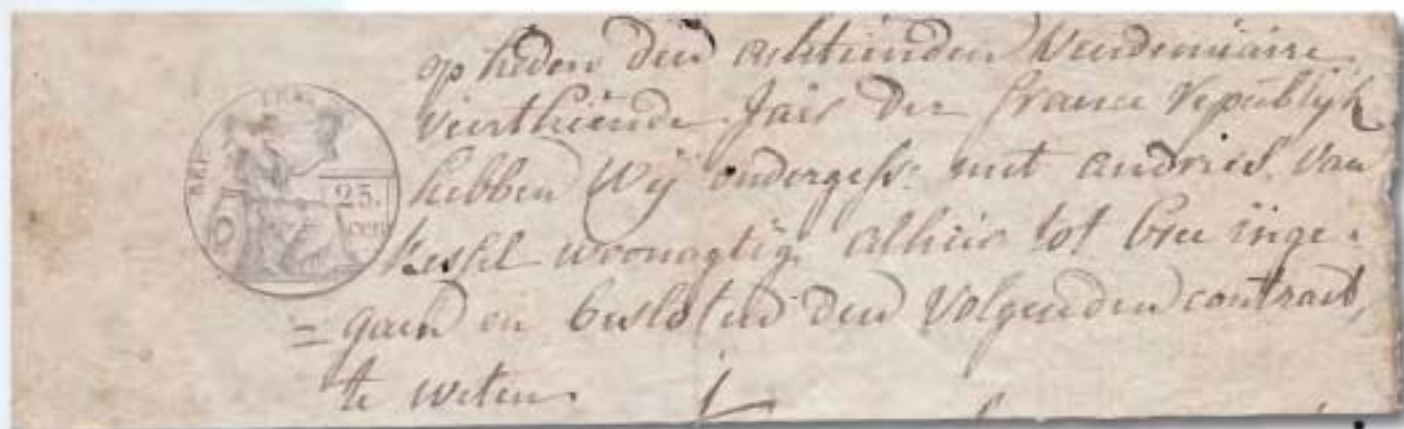 op heden den achtienden Vendemiaire
vierthiende Jair der france republijk
hebben Wij ondergess: met andries Van
kessel woonagtig alhier tot bree inge-
= gaen en besloten den Volgenden contract,
te weten
25.